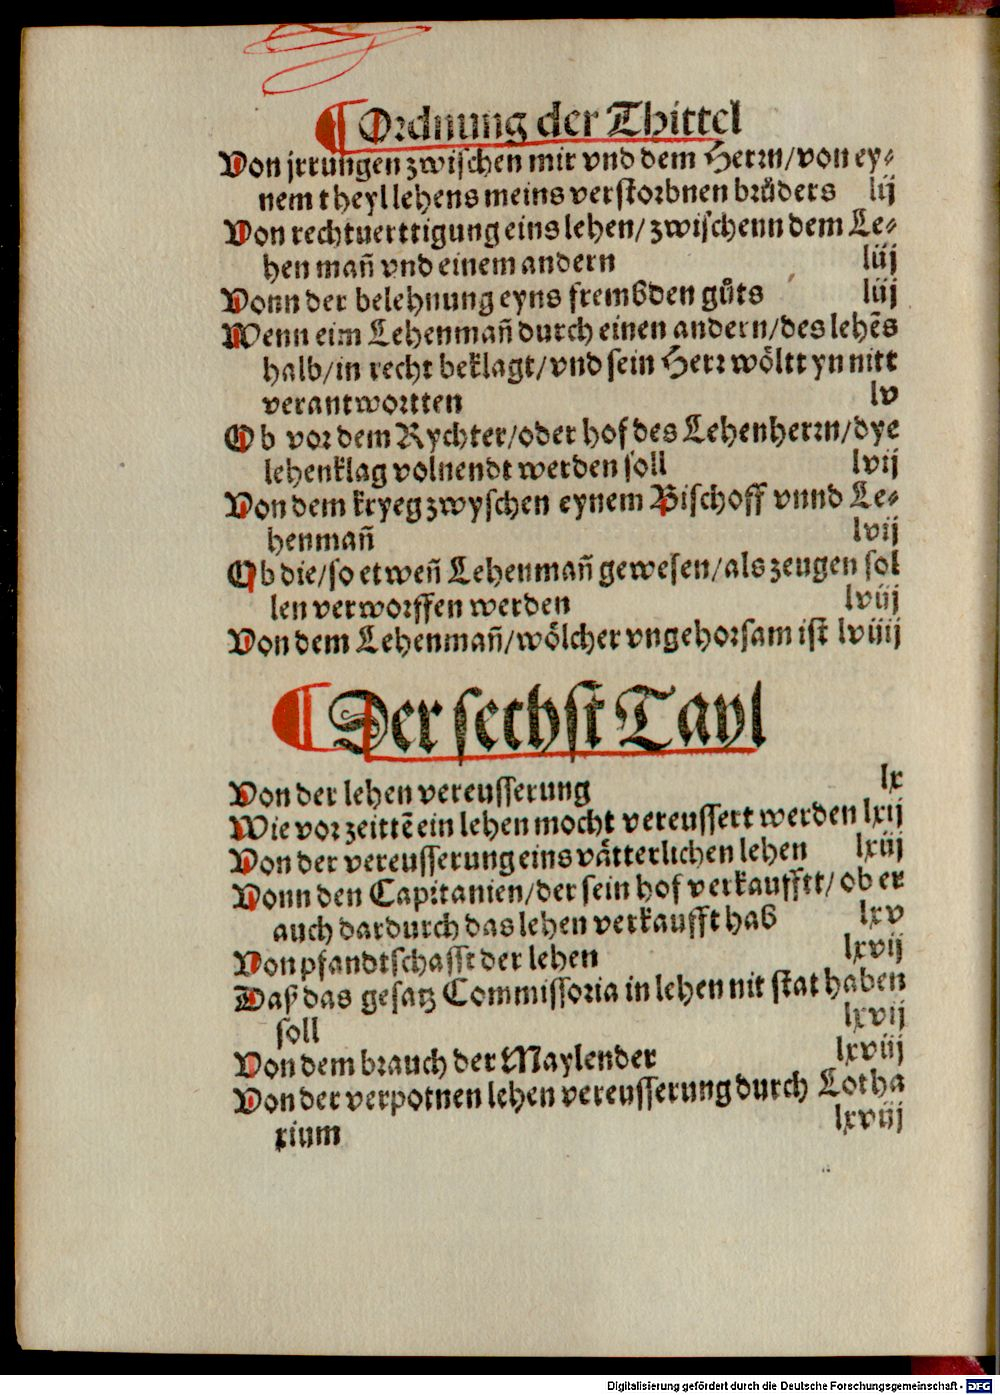 ¶ Ordnung der Thittel
Von jrrungen zwischen mir vnd dem Herrn/von ey⸗
nem theyl lehens meins verstorbnen brůders lij
Von rechtuerttigung eins lehen/ zwischenn dem Le⸗
hen mañ vnd einem andern liij
Vonn der belehnung eyns frembden gůts liij
Wenn eim Lehenmañ durch einen andern/des lehẽs
halb/in recht beklagt/vnd sein Herr wöltt yn nitt
verantwortten lv
Ob vor dem Rychter/oder hof des Lehenherrn/dye
lehenklag volnendt werden soll lvij
Von dem kryeg zwyschen eynem Bischoff vnnd Le⸗
henmañ lvij
Ob die/so etweñ Lehenmañ gewesen/als zeugen sol
len verworffen werden lviij
Von dem Lehenmañ/wölcher vngehorsam ist lviiij
¶ Der sechst Tayl
Von der lehen vereusserung lx
Wie vor zeittẽ ein lehen mocht vereussert werden lxij
Von der vereusserung eins vätterlichen lehen lxiij
Vonn den Capitanien/der sein hof verkaufftt/ ob er
auch dardurch das lehen verkaufft hab lxv
Von pfandtschafft der lehen lxvij
Daß das gesatz Commissoria in lehen nit stat haben
soll lxvij
Von dem brauch der Maylender lxviij
Von der verpotnen lehen vereusserung durch Lotha
rium lxviij
Digitalisierung gefördert durch die Deutsche Forschungsgemeinschaft - DFG